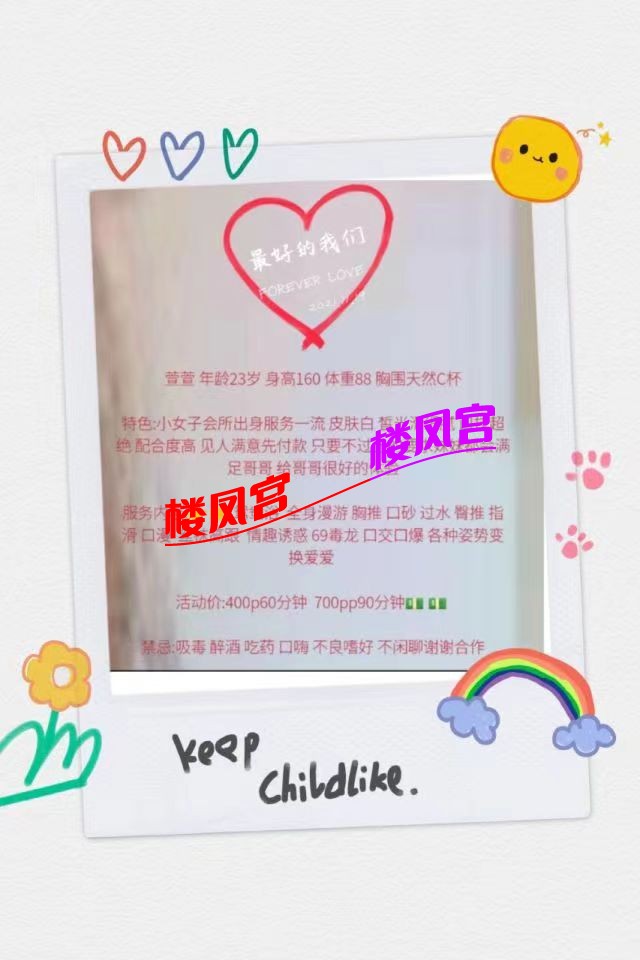 最好的我们
FOREVER LOVE
萱萱 年龄23岁 身高160 体重88 胸围天然C杯
特色:小女子会所出身服务一流 皮肤白 超
绝 配合度高 见人满意先付款 只要不过 满
楼凤宫
足哥哥 给哥哥很好的体验
楼凤宫
服务内 全身漫游 胸推 口砂 过水 臀推 指
滑 口漫 情趣诱惑 69毒龙 口交口爆 各种姿势变
换爱爱
活动价:400p60分钟 700pp90分钟
禁忌:吸毒 醉酒 吃药 口嗨 不良嗜好 不闲聊谢谢合作
keep
Childlike.